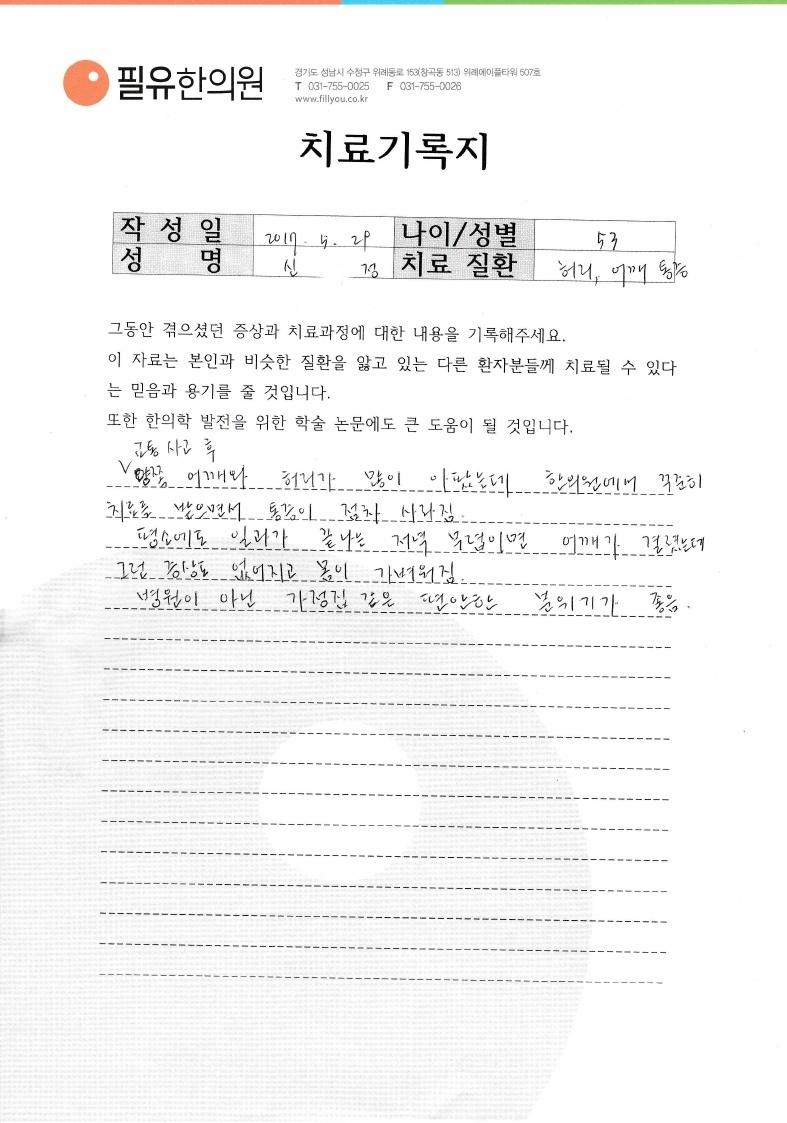 필유한의원
경기도 성남시 수정구 위례동로 153(창곡동 513) 위례에이플타워 507호
T 031-755-0025 F 031-755-0026
www.fillyou.co.kr
치료기록지
작 성 일 2017. 5. 29 나이/성별 53
성 명 신 정 치료 질환 허리, 어깨 통증
그동안 겪으셨던 증상과 치료과정에 대한 내용을 기록해주세요.
이 자료는 본인과 비슷한 질환을 앓고 있는 다른 환자분들께 치료될 수 있다
는 믿음과 용기를 줄 것입니다.
또한 한의학 발전을 위한 학술 논문에도 큰 도움이 될 것입니다.
교통 사고 후
양쪽 어깨와 허리가 많이 아팠는데 한의원에서 꾸준히
치료를 받으면서 통증이 점차 사라짐.
평소에도 일과가 끝나는 저녁 무렵이면 어깨가 결렸는데
그런 증상도 없어지고 몸이 가벼워짐.
병원이 아닌 가정집 같은 편안한 분위기가 좋음.